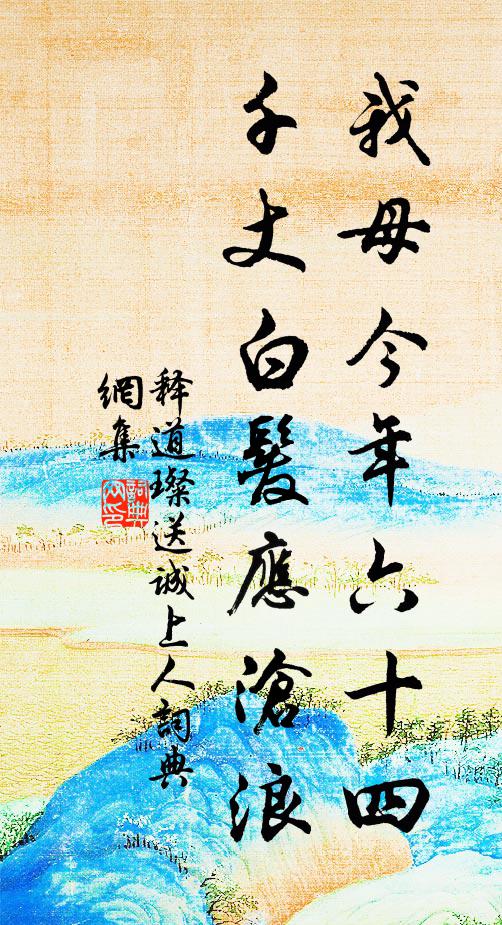 我母今年六十四
千丈白髮應滄浪
释道璨送诚上人詞典
網集
詞典